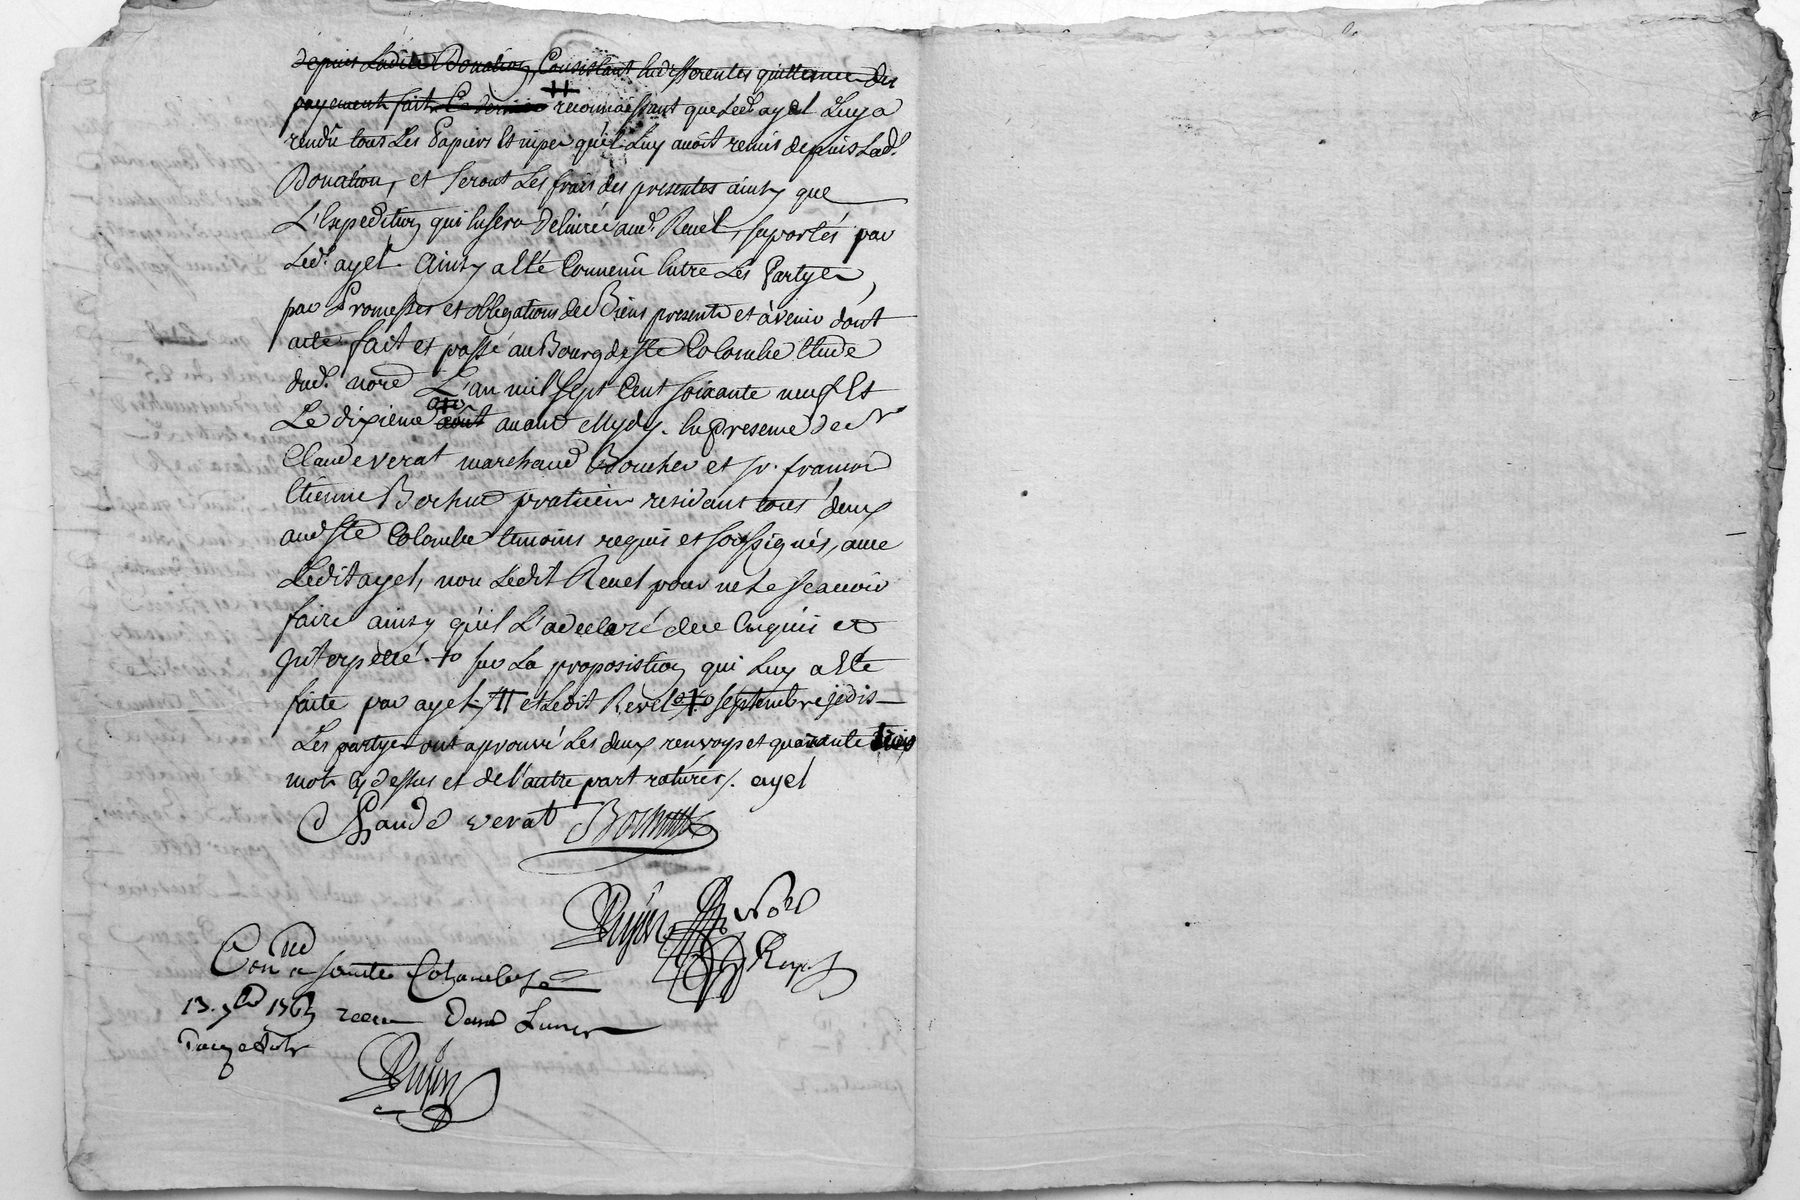 depuis Ladite Donation, Consistant En differentes quittances Des
payements faits Ce dernier # reconnaissant que Led. ayel Luy a
rendû tous Les Papiers Et nipes qu'il Luy avoit remis depuis Lad.
Donation, et seront Les frais des presentes ainsy que
L'Expedition qui En sera Delivrée aud. Revel, suportés par
Led. ayel. Ainsy a Eté Convenû Entre Les Partyes,
par Promesses et obligations de Biens presents et avenir dont
acte fait et passé au Bourg de Ste Colombe Etude
dud. nore L'an mil sept Cent soixante neuf Et
Le dixieme août avant Mydy. En presence de sr
Claude verat marchand Boucher et sr. francois
Etienne praticien residants tous deux
aud Ste Colombe temoins requis et soussignés, avec
Ledit ayel, non Ledit Revel pour ne Le sçavoir
faire ainsy qu'il L'a declaré de ce Enquis et
Interpellé. +o sur La proposistion qui Luy a Eté
faite par ayel, # et Ledit Revel +o septembre je dis
Les partyes ont aprouvé Les deux renvoys et quarante trois
mots Cy dessus et de l'autre part raturés. ayel
Claude verat
Conlé a sainte Colombe Le
13. 7bre 1769 recu